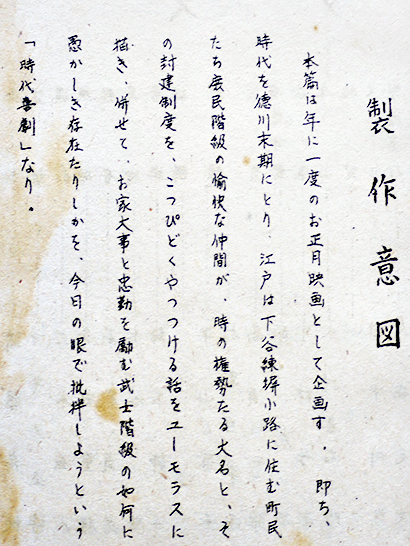 製作意図
本篇は年に一度のお正月映画として企画す。即ち、
時代を徳川末期にとり、江戸は下谷練塀小路に住む町民
たち庶民階級の愉快な仲間が、時の権勢たる大名と、そ
の封建制度を、こつぴどくやつつける話をユーモラスに
描き、併せて、お家大事と忠勤を励む武士階級の如何に
愚かしき存在たりしかを、今日の眼で批判しようという
「時代喜劇」なり。